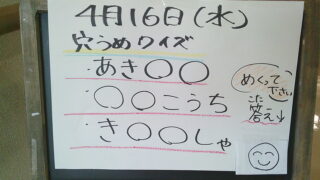 4月16日(水)
穴うめクイズ
・あき○○
・○○こうち
・き○○しゃ
めくって
下さい
答え↓